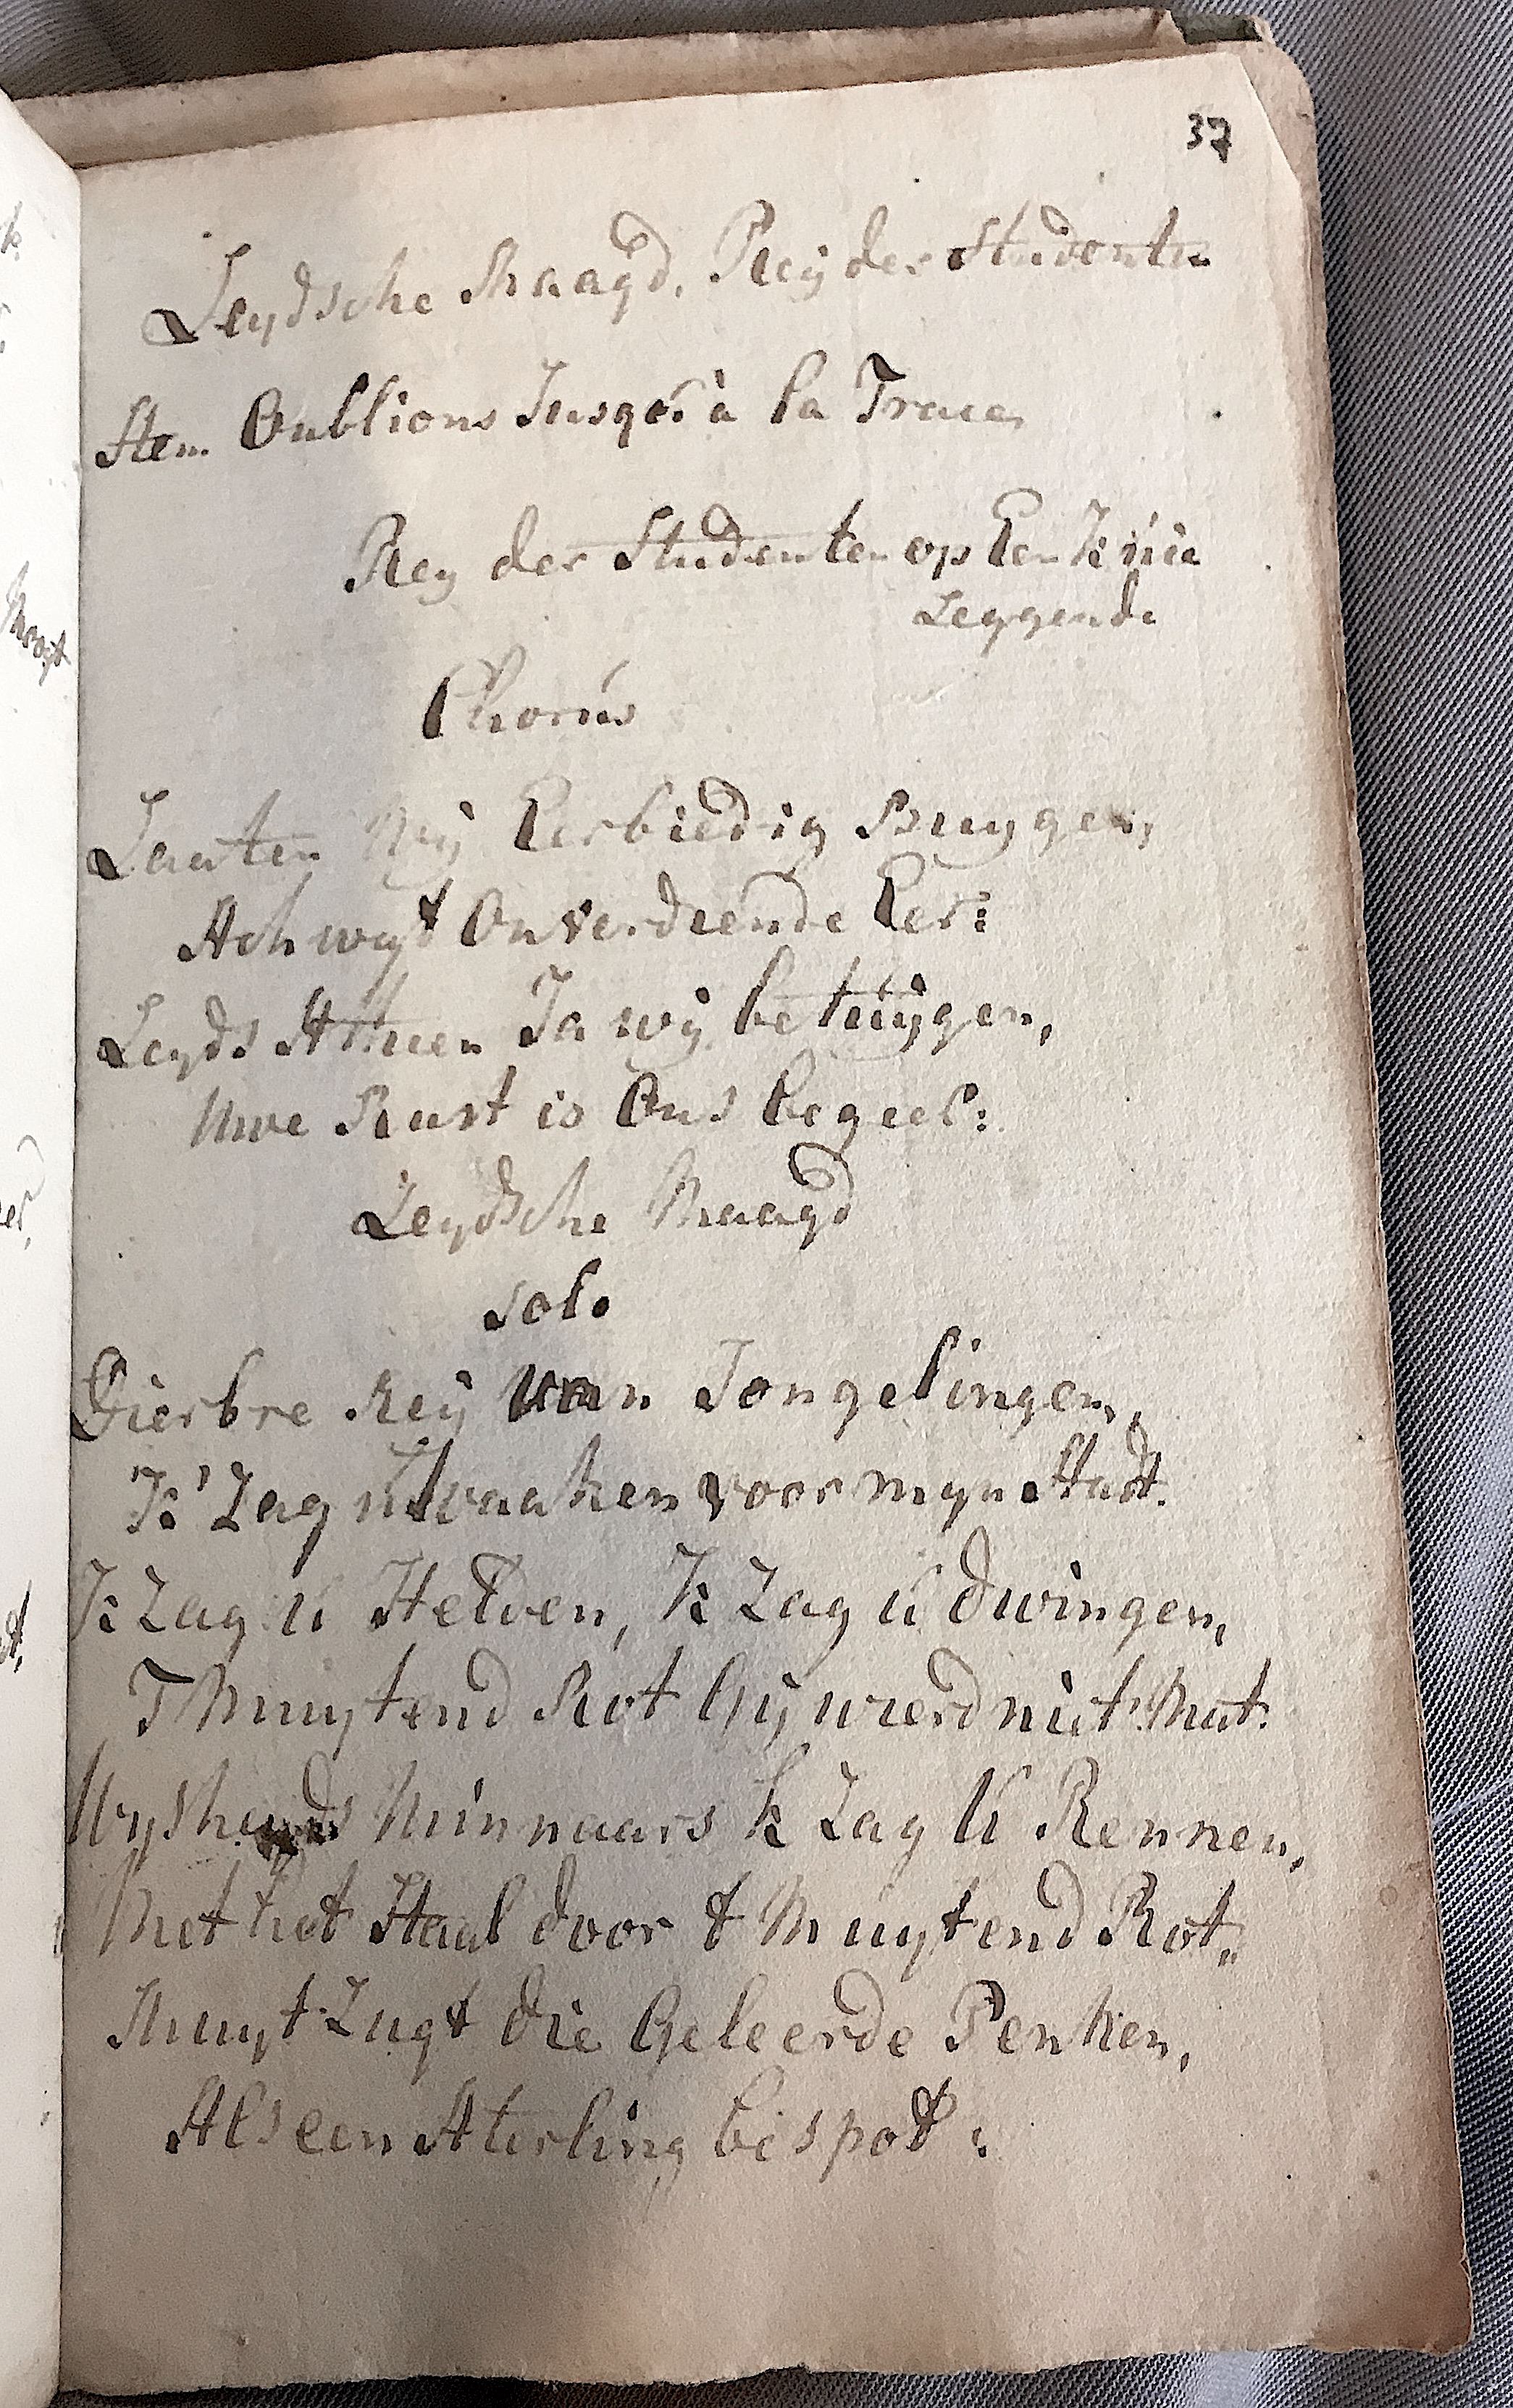 37
Leydsche Maagd, Reij der Studenten
Stem Oublions Jusqú à la Trace,
Rey der Studenten op Een Knie
Leggende
Chorús
Laaten Wij Eerbiedig Buygen,
Ach wegt Onverdiende Eer:
Leyds Athúen Ja wij betúijgen,
Uwe Rust is Ons begeel:
Leydsche Maagd
Sol.
Dierbre Reij Van Jongelingen,
'K' Zag ú waaken voor myn Stadt.
K Zag ú Helden, K Zag ú dwingen,
T Muytend Rot Gij wierd niet Mat.
Wyshyds Minnaars k Zag Ú Rennen,
Met het Staal door t Muytend Rot,
Thuyt Zugt die Geleerde Penken,
Als een Aterling bespot: